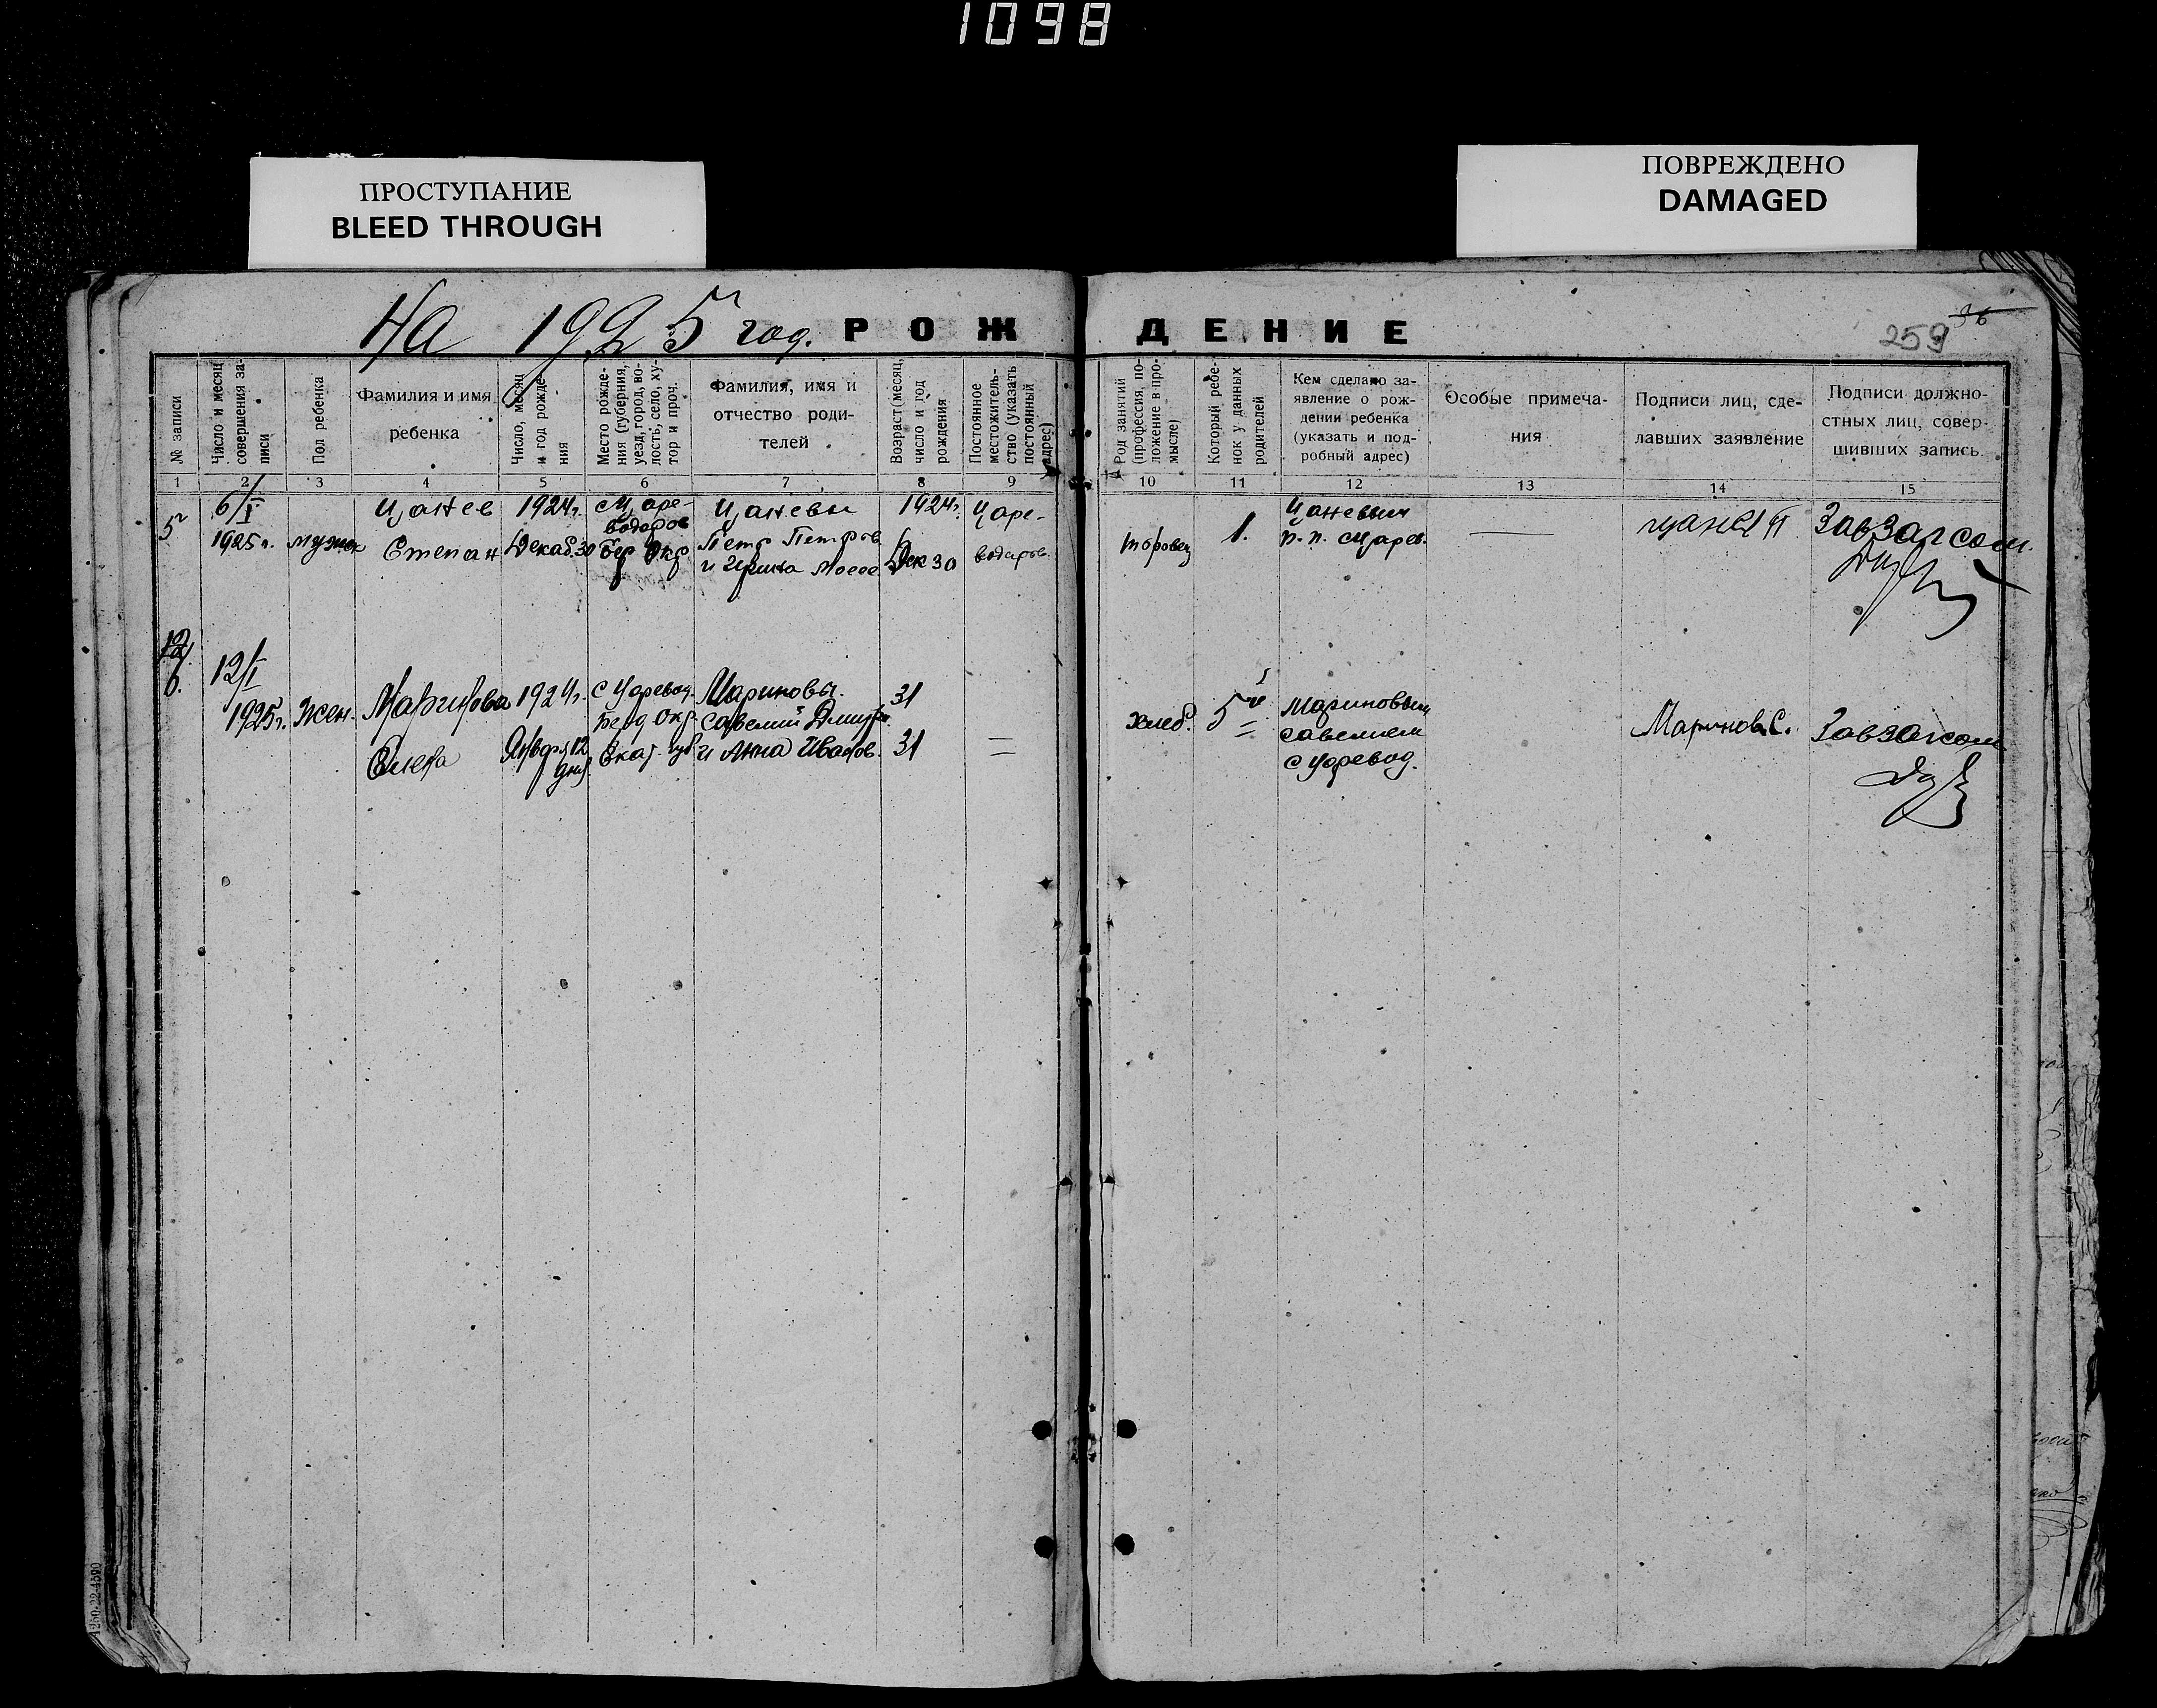 1098
ПРОСТУПАНИЕ
BLEED THROUGH
ПОВРЕЖДЕНО
DAMAGED
На 1925 год. РОЖДЕНИЕ
36
259
№ записи
Число и месяц
совершения за-
писи
Пол ребенка
Фамилия и имя
ребенка
Число, месяц
и год рожде-
ния
Место рожде-
ния (губерния,
уезд, город, во-
лость, село, ху-
тор и проч.
Фамилия, имя и
отчество роди-
телей
Возраст (месяц,
число и год
рождения
Постоянное
местожитель-
ство (указать
постоянный
адрес)
Род занятий
(профессия, по-
ложение в про-
мысле)
Который ребе-
нок у данных
родителей
Кем сделано за-
явление о рож-
дении ребенка
(указать и под-
робный адрес)
Особые примеча-
ния
Подписи лиц, сде-
лавших заявление
Подписи должно-
стных лиц, совер-
шивших запись.
1 2 3 4 5 6 7 8 9 10 11 12 13 14 15
5
6/I
1925 г.
мужск
Цанев
Степан
1924 г.
Декаб. 30
с Царе-
водаров
Бер Окр
Цаневы
Петр Петров
и Ирина
1924 г.
Дек 30
Царе-
водаров.
1.
Цаневым
п. п. с Царев.
Цанев П
Завзагсом.
12
6.
12/I
1925 г.
Жен.
Маринова
Елена
1924 г.
Января 12
дня
с Царевод.
Берд Окр.
Екат. губ
Мариновы.
Савелий Дмитр.
и Анна Иванов.
31
31
=
хлеб.
5й
Мариновым
Савелием
с Царевод.
Маринов С.
Завзагсом
А260-22-4590